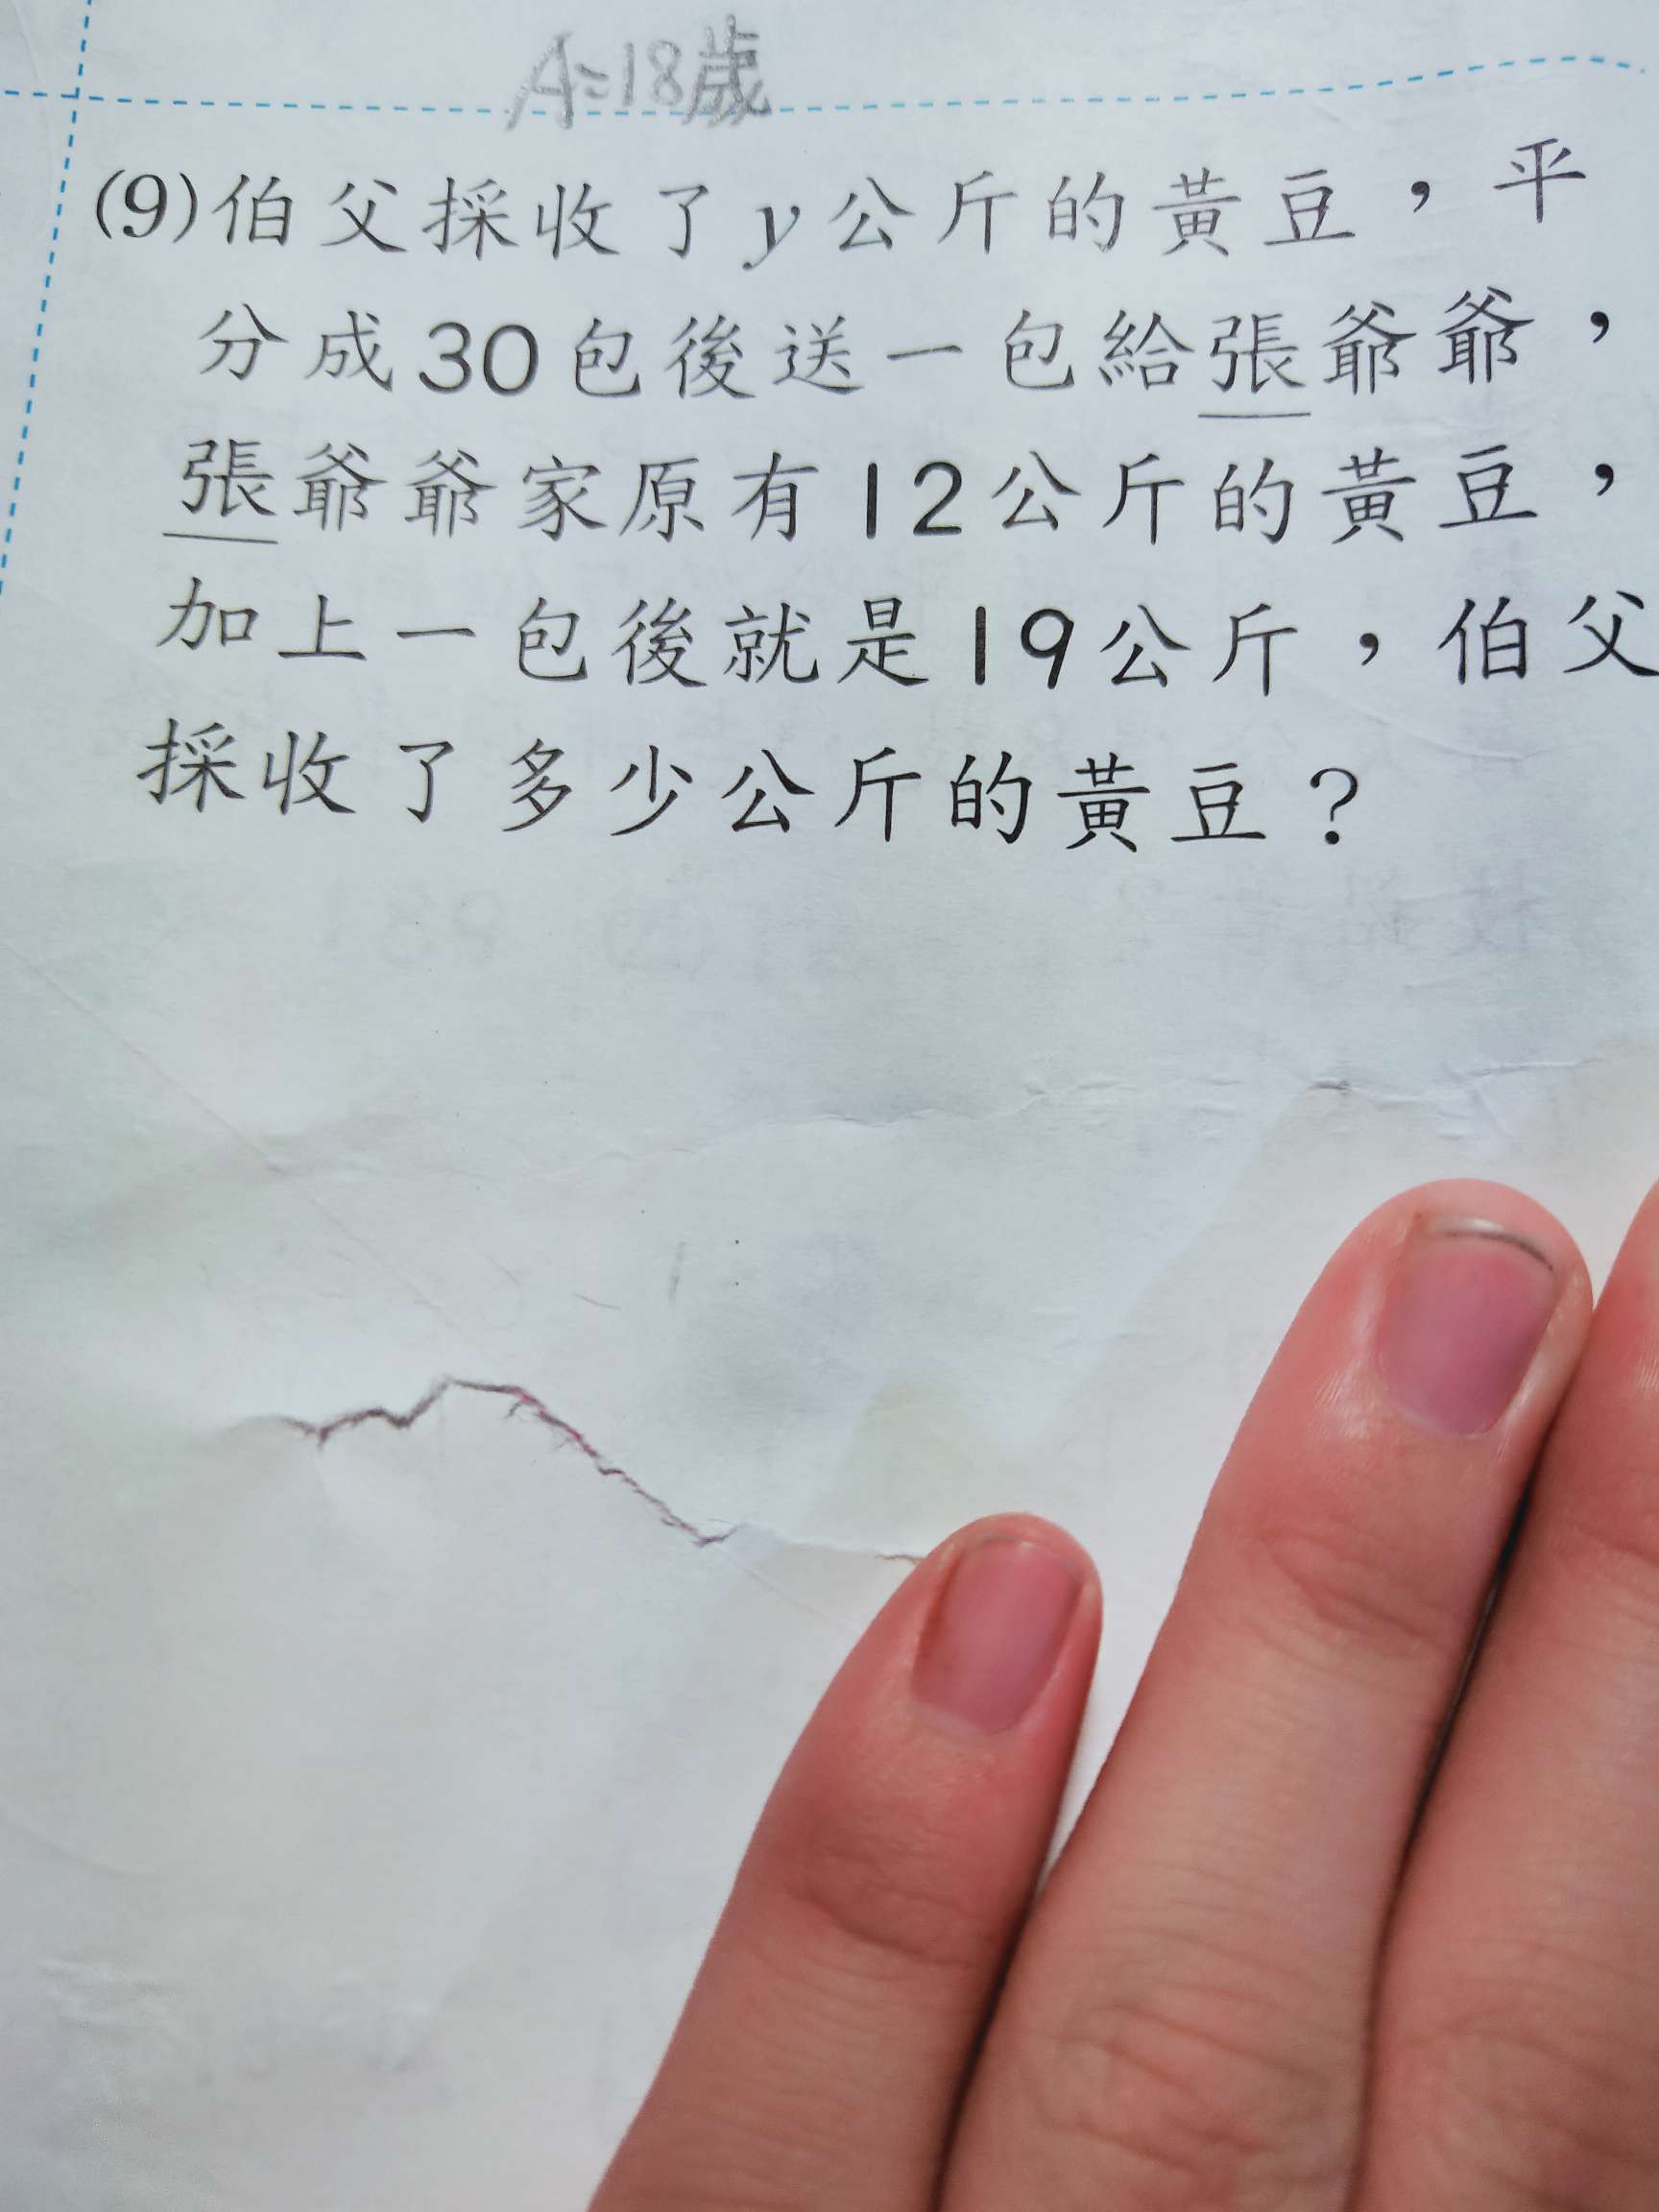 A=18歲
(9)伯父採收了y公斤的黃豆，平
分成30包後送一包給張爺爺，
張爺爺家原有12公斤的黃豆，
加上一包後就是19公斤，伯父
採收了多少公斤的黃豆？